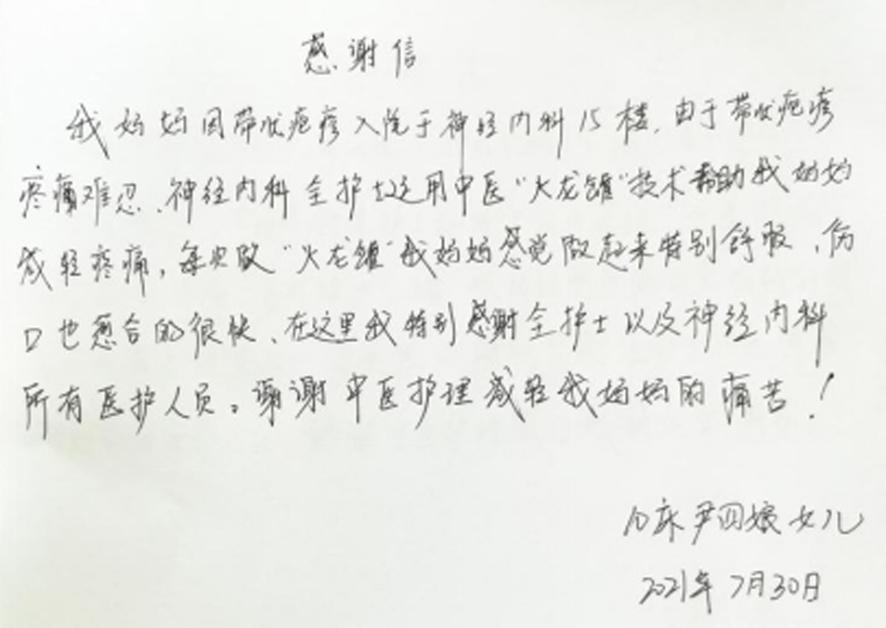 感谢信
我妈妈因带状疱疹入院于神经内科15楼,由于带状疱疹
疼痛难忍、神经内科全护士运用中医"火龙罐"技术帮助我妈妈
减轻疼痛,每次做"火龙罐"我妈妈感觉做起来特别舒服、伤
口也愈合的很快、在这里我特别感谢全护士以及神经内科
所有医护人员。谢谢中医护理减轻我妈妈的痛苦!
床尹四娘女儿
2021年7月30日